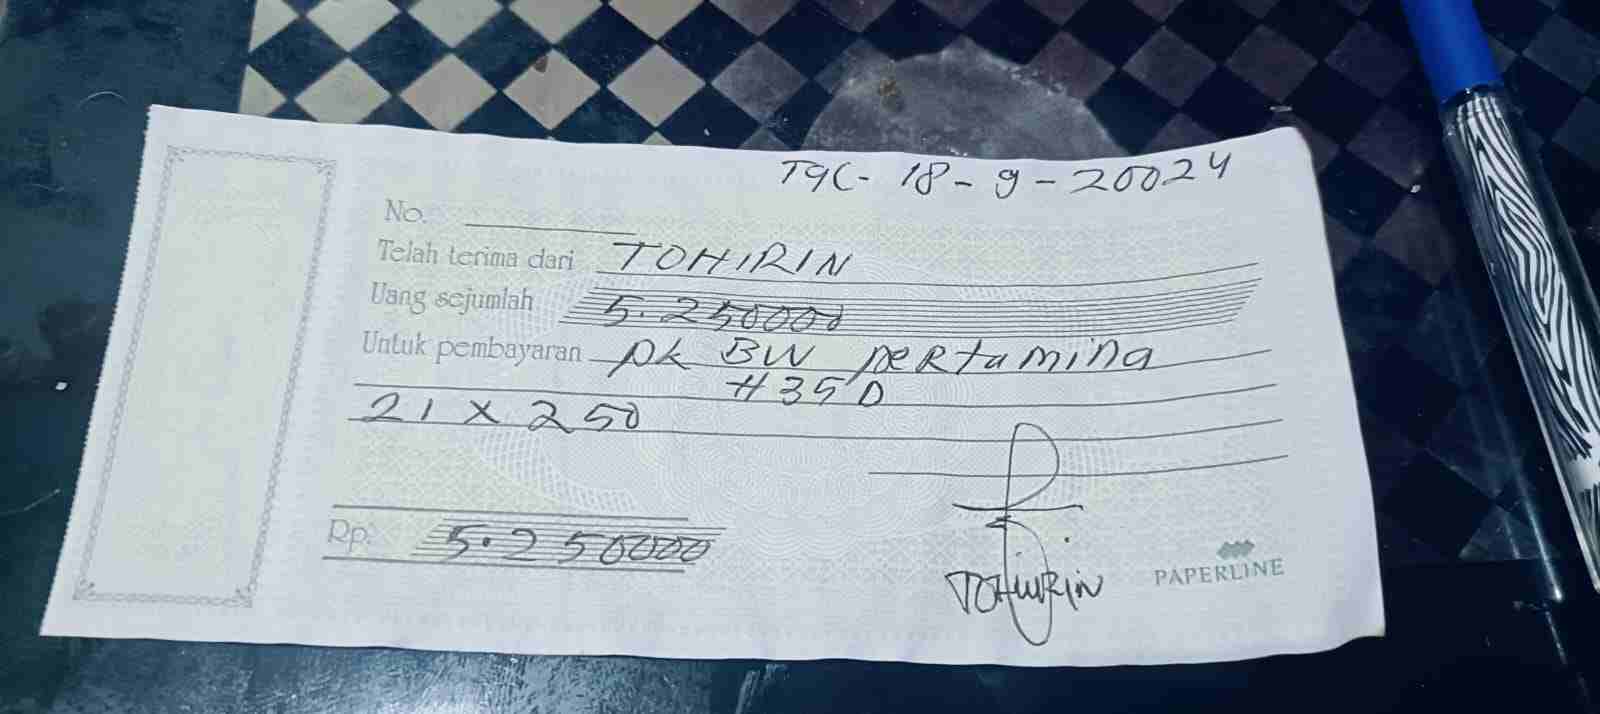 Tgl- 18-9-20024
No.
Telah terima dari TOHIRIN
Uang sejumlah 5.250000
Untuk pembayaran pk BW peRtamina
H35D
21 x 250
Rp. 5.250000
TOHIRIN
PAPERLINE